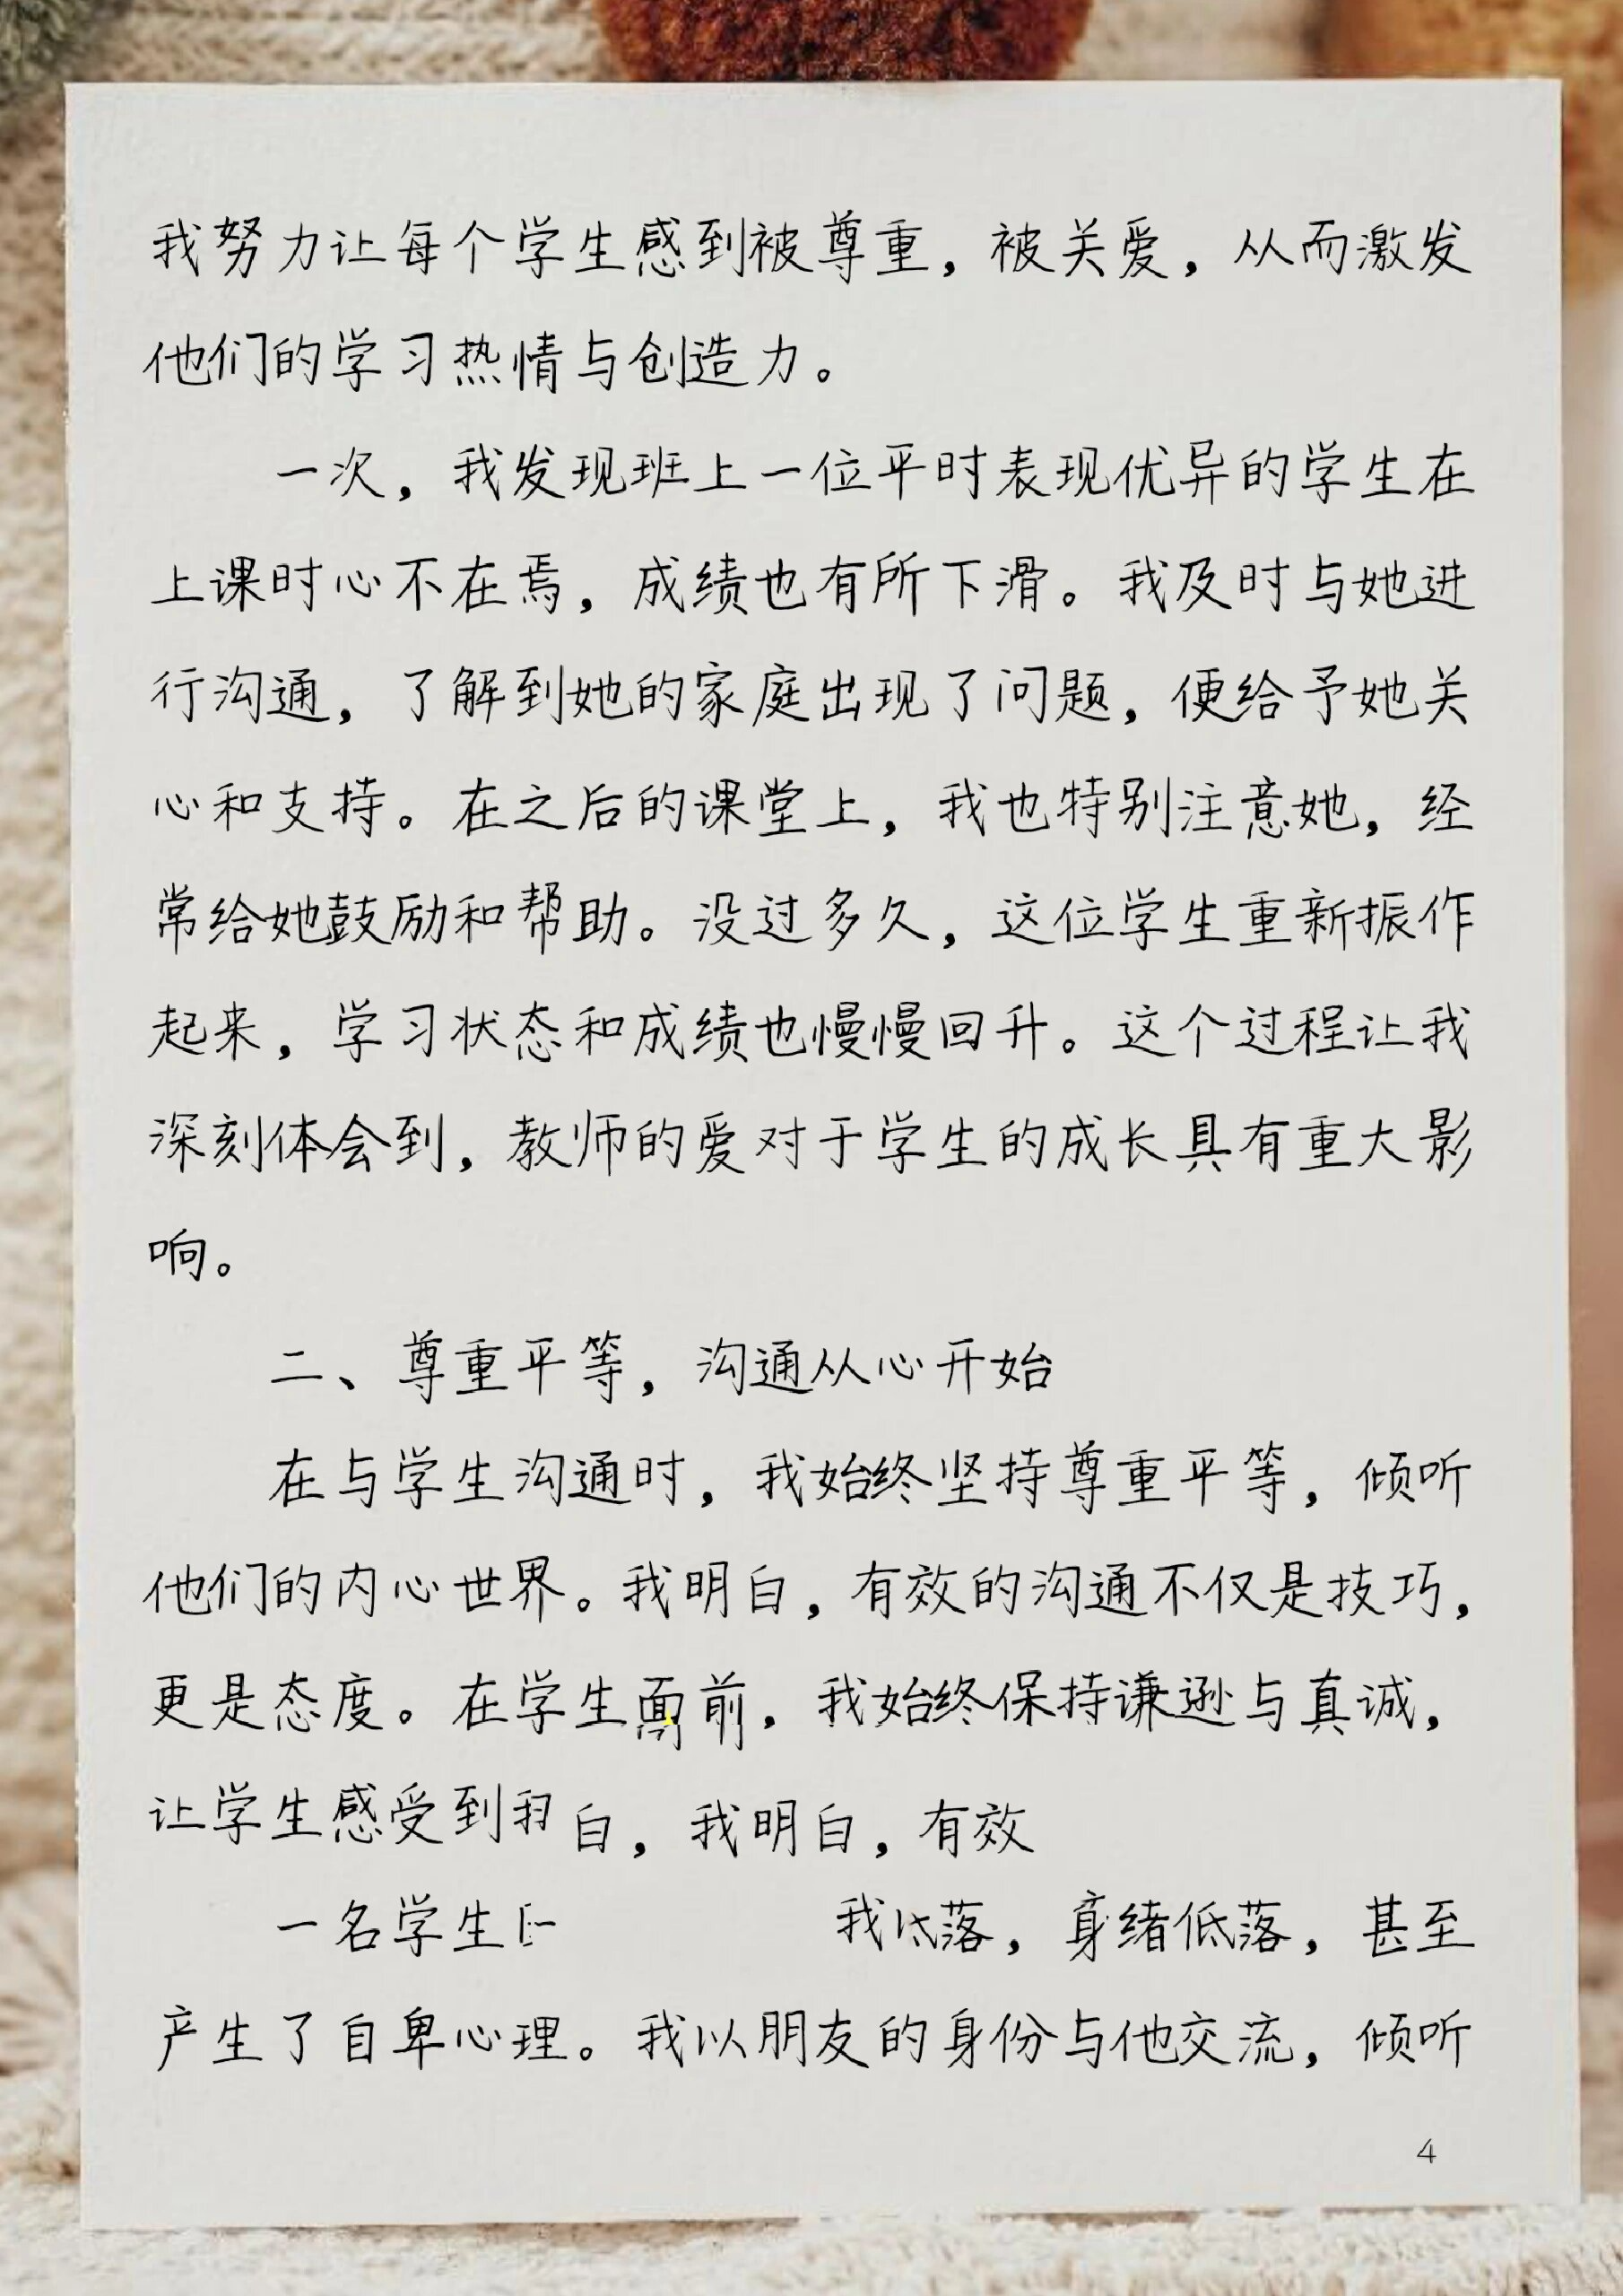 我努力让每个学生感到被尊重，被关爱，从而激发
他们的学习热情与创造力。
一次，我发现班上一位平时表现优异的学生在
上课时心不在焉，成绩也有所下滑。我及时与她进
行沟通，了解到她的家庭出现了问题，便给予她关
心和支持。在之后的课堂上，我也特别注意她，经
常给她鼓励和帮助。没过多久，这位学生重新振作
起来，学习状态和成绩也慢慢回升。这个过程让我
深刻体会到，教师的爱对于学生的成长具有重大影
响。
二、尊重平等，沟通从心开始
在与学生沟通时，我始终坚持尊重平等，倾听
他们的内心世界。我明白，有效的沟通不仅是技巧，
更是态度。在学生面前，我始终保持谦逊与真诚，
让学生感受到 白，我明白，有效
一名学生 我 落， 绪低落，甚至
产生了自卑心理。我以朋友的身份与他交流，倾听
4